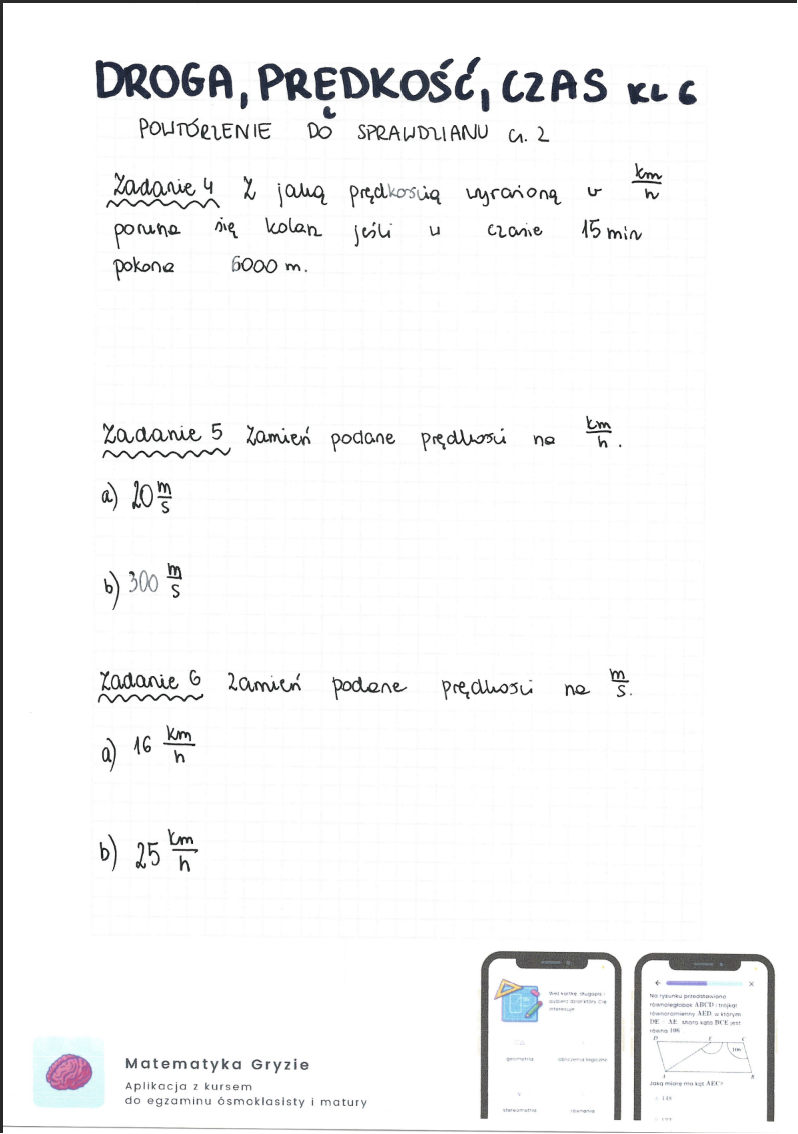 DROGA, PRĘDKOŚĆ, CZAS KL 6
POWTÓRZENIE DO SPRAWDZIANU CZ. 2
Zadanie 4 Z jaką prędkością wyrażoną w km/h
porusza się kolarz jeśli w czasie 15 min
pokona 6000 m.
Zadanie 5 Zamień podane prędkości na km/h.
a) 20 m/s
b) 300 m/s
Zadanie 6 Zamień podane prędkości na m/s.
a) 16 km/h
b) 25 km/h
Matematyka Gryzie
Aplikacja z kursem
do egzaminu ósmoklasisty i matury
Weź kartkę, długopis i
wybierz dział który Cię
interesuje
geometria
obliczenia logiczne
stereometria
równania
Na rysunku przedstawiono
równoległobok ABCD i trójkąt
równoramienny AED, w którym
DE = AE. Miara kąta BCE jest
równa 106
D E C
106
A B
Jaką miarę ma kąt AEC?
148